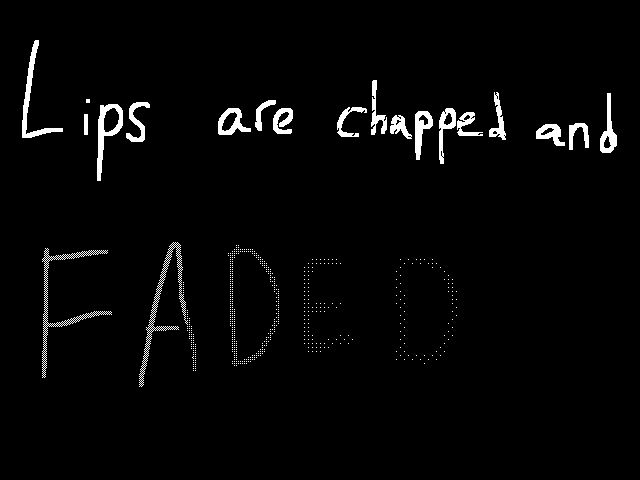 Lips are chapped and
FADED